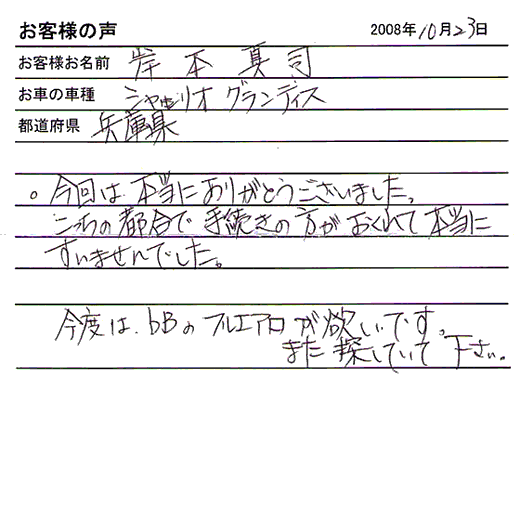 お客様の声 2008年10月23日
お客様お名前 岸本真司
お車の車種 シャリオグランディス
都道府県 兵庫県
。今回は本当にありがとうございました。
こっちの都合で手続きの方がおくれて本当に
すいませんでした。
今度は、bBのフルエアロが欲しいです。
また探していて下さい。